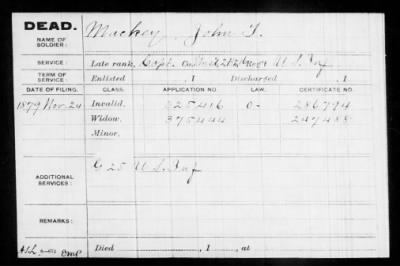 DEAD.
NAME OF SOLDIER:
Mackey, John T.
SERVICE:
Late rank, Capt. Inf
TERM OF SERVICE:
Enlisted , 1 Discharged , 1
DATE OF FILING. CLASS. APPLICATION NO. LAW. CERTIFICATE NO.
1879 Nov. 24 Invalid. 325416 O- 286794
Widow. 375444 247488
Minor.
ADDITIONAL SERVICES:
G 25 U S Inf
REMARKS:
Died , 1 , at